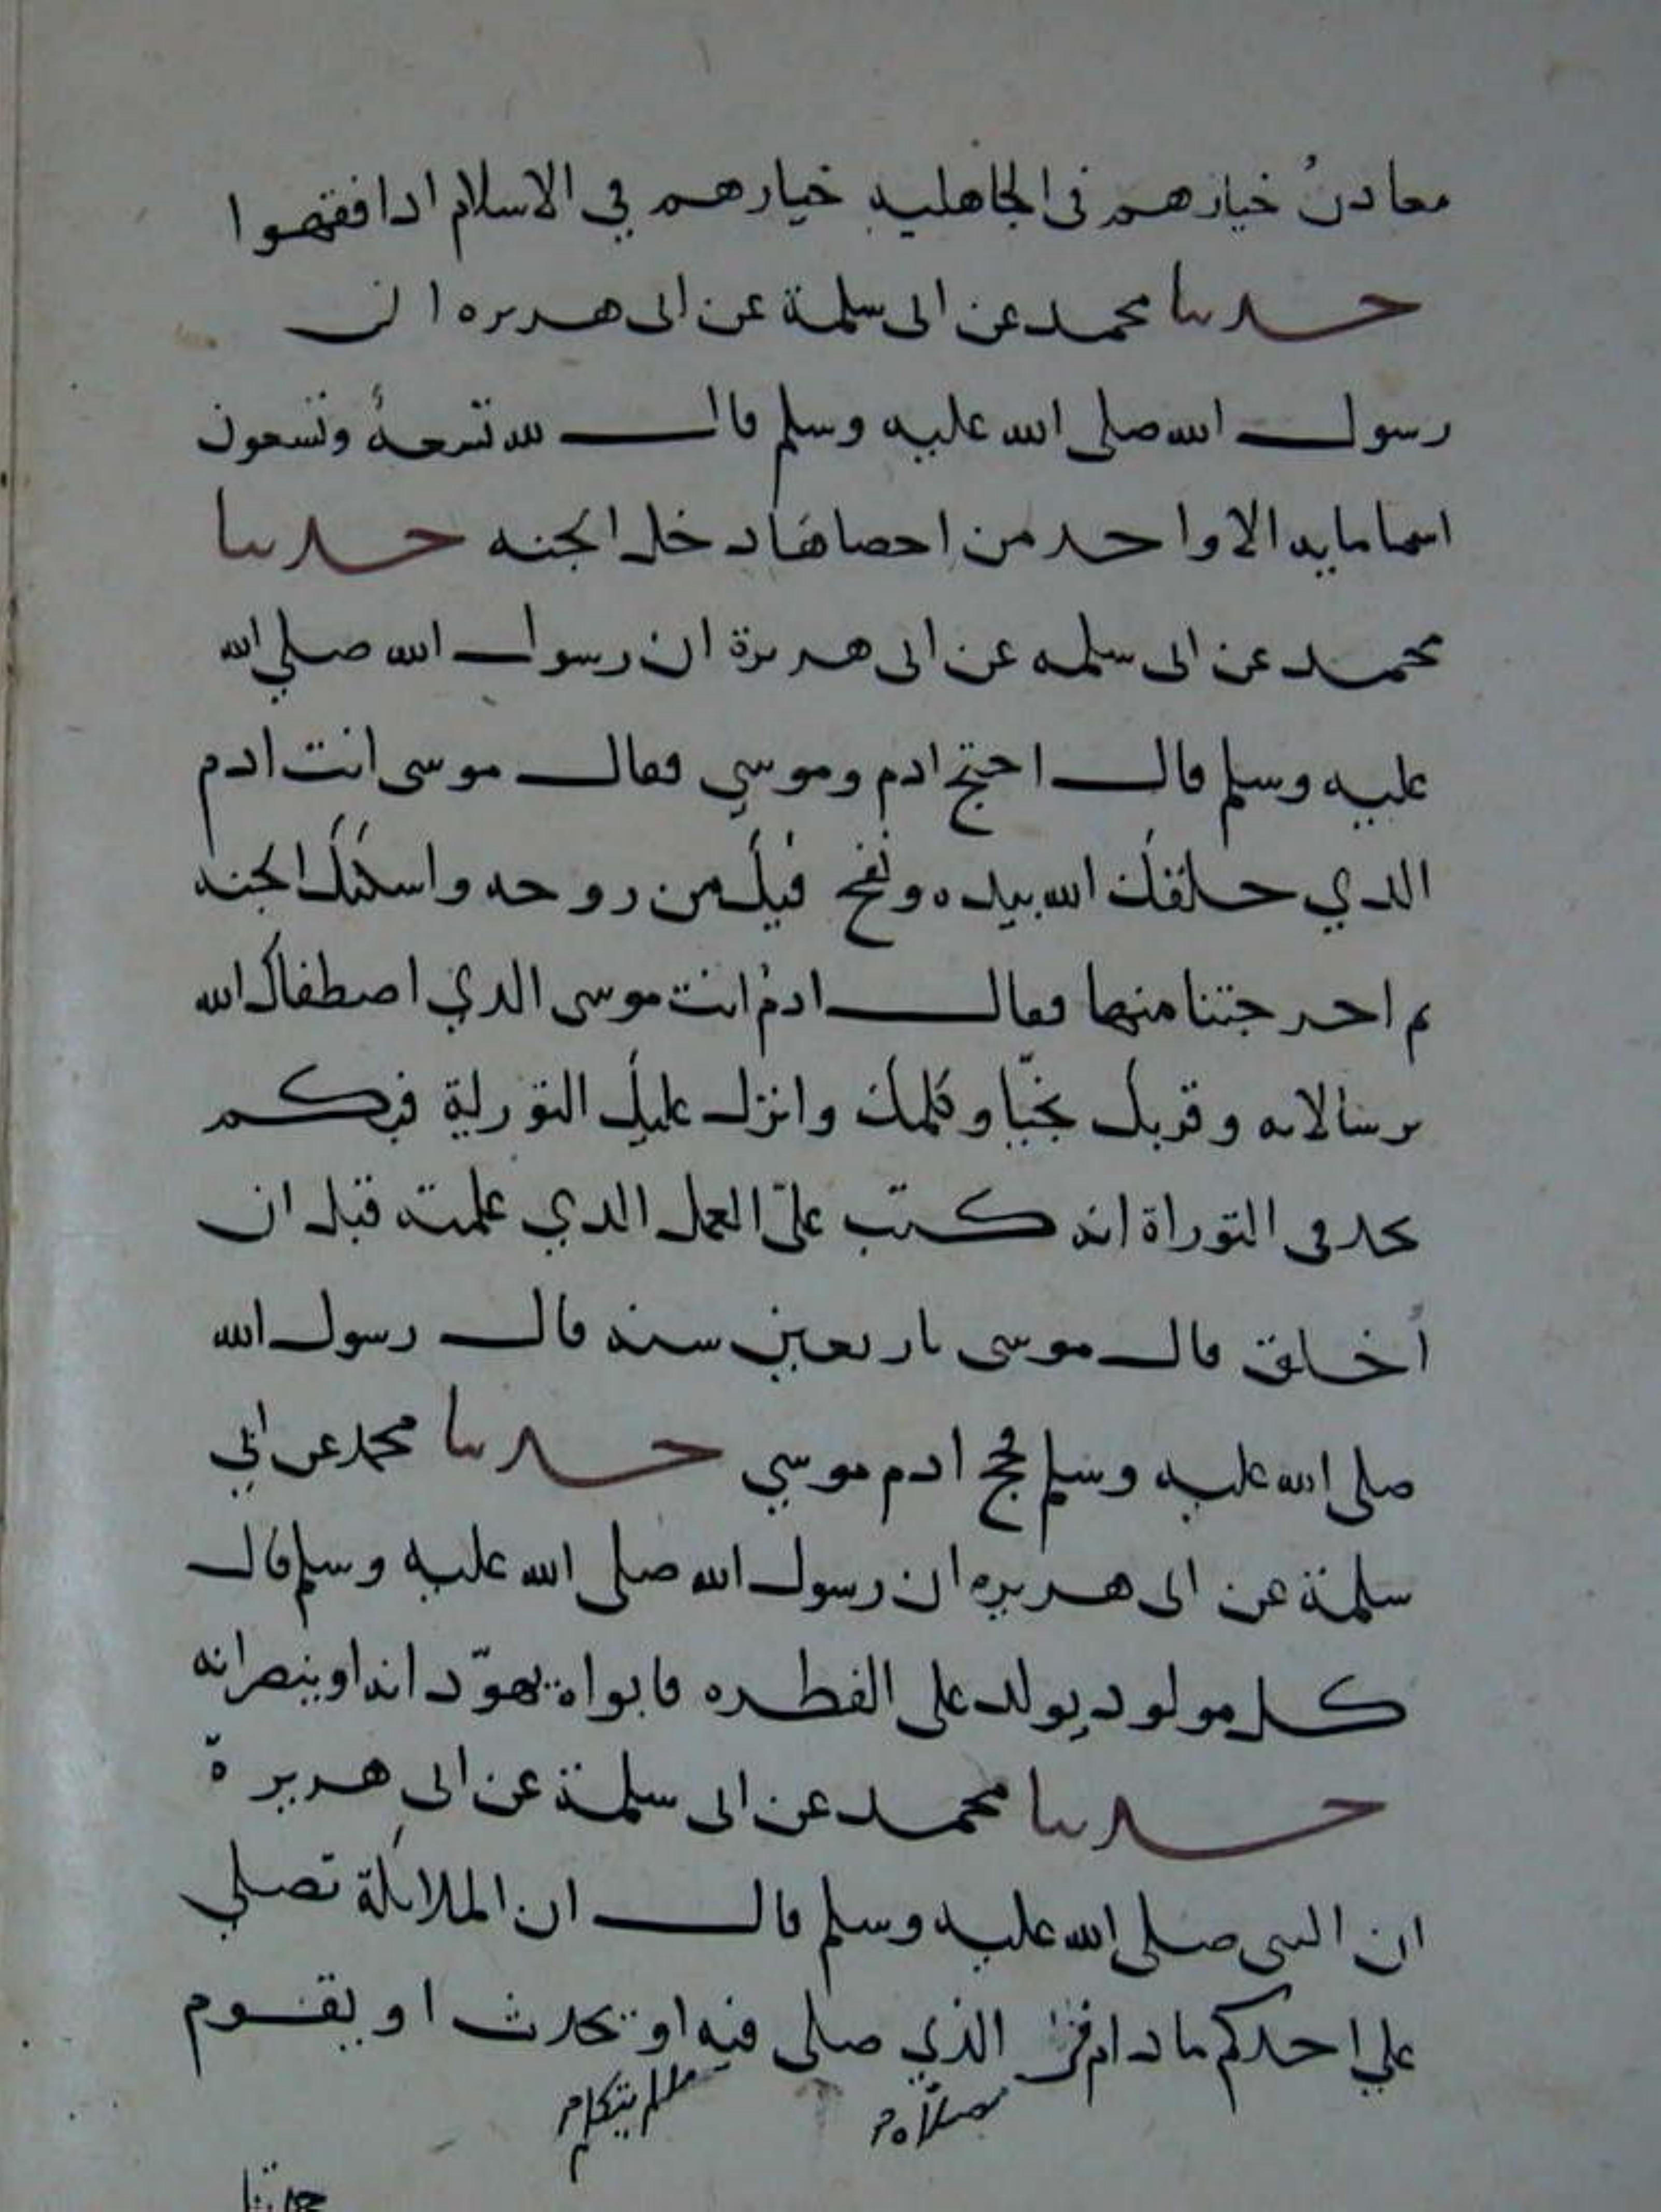 معادنُ خيارهم في الجاهليه خيارهم في الاسلام ادا فقهوا
حدثنا محمد عن ابى سلمة عن ابى هريره ان
رسول الله صلى الله عليه وسلم قال لله تسعةُ وتسعون
اسما مايه الا واحد من احصاها دخل الجنه حدثنا
محمد عن ابى سلمه عن ابى هريرة ان رسول الله صلي الله
عليه وسلم قال احتج ادم وموسي فقال موسى انت ادم
الدي خلقك الله بيده ونفخ فيك من روحه واسكنك الجنه
ثم اخرجتنا منها فقال ادمُ انت موسى الدي اصطفاك الله
برسالاته وقربك نجيّا وكلمك وانزل عليك التورية فبكم
تجد فى التوراة انه كتب عليّ العمل الدي عملته قبل ان
أُخلق قال موسى باربعين سنه قال رسول الله
صلى الله عليه وسلم فحج ادم موسي حدثنا محمد عن ابي
سلمة عن ابى هريره ان رسول الله صلى الله عليه وسلم قال
كل مولود يولد على الفطره فابواه يهوّدانه او ينصرانه
حدثنا محمد عن ابى سلمة عن ابى هريرة
ان النبى صلى الله عليه وسلم قال ان الملائكة تصلي
علي احدكم ما دام في الذي صلى فيه او يحدث او يقوم
مصلاه مالم يتكلم
حدثنا